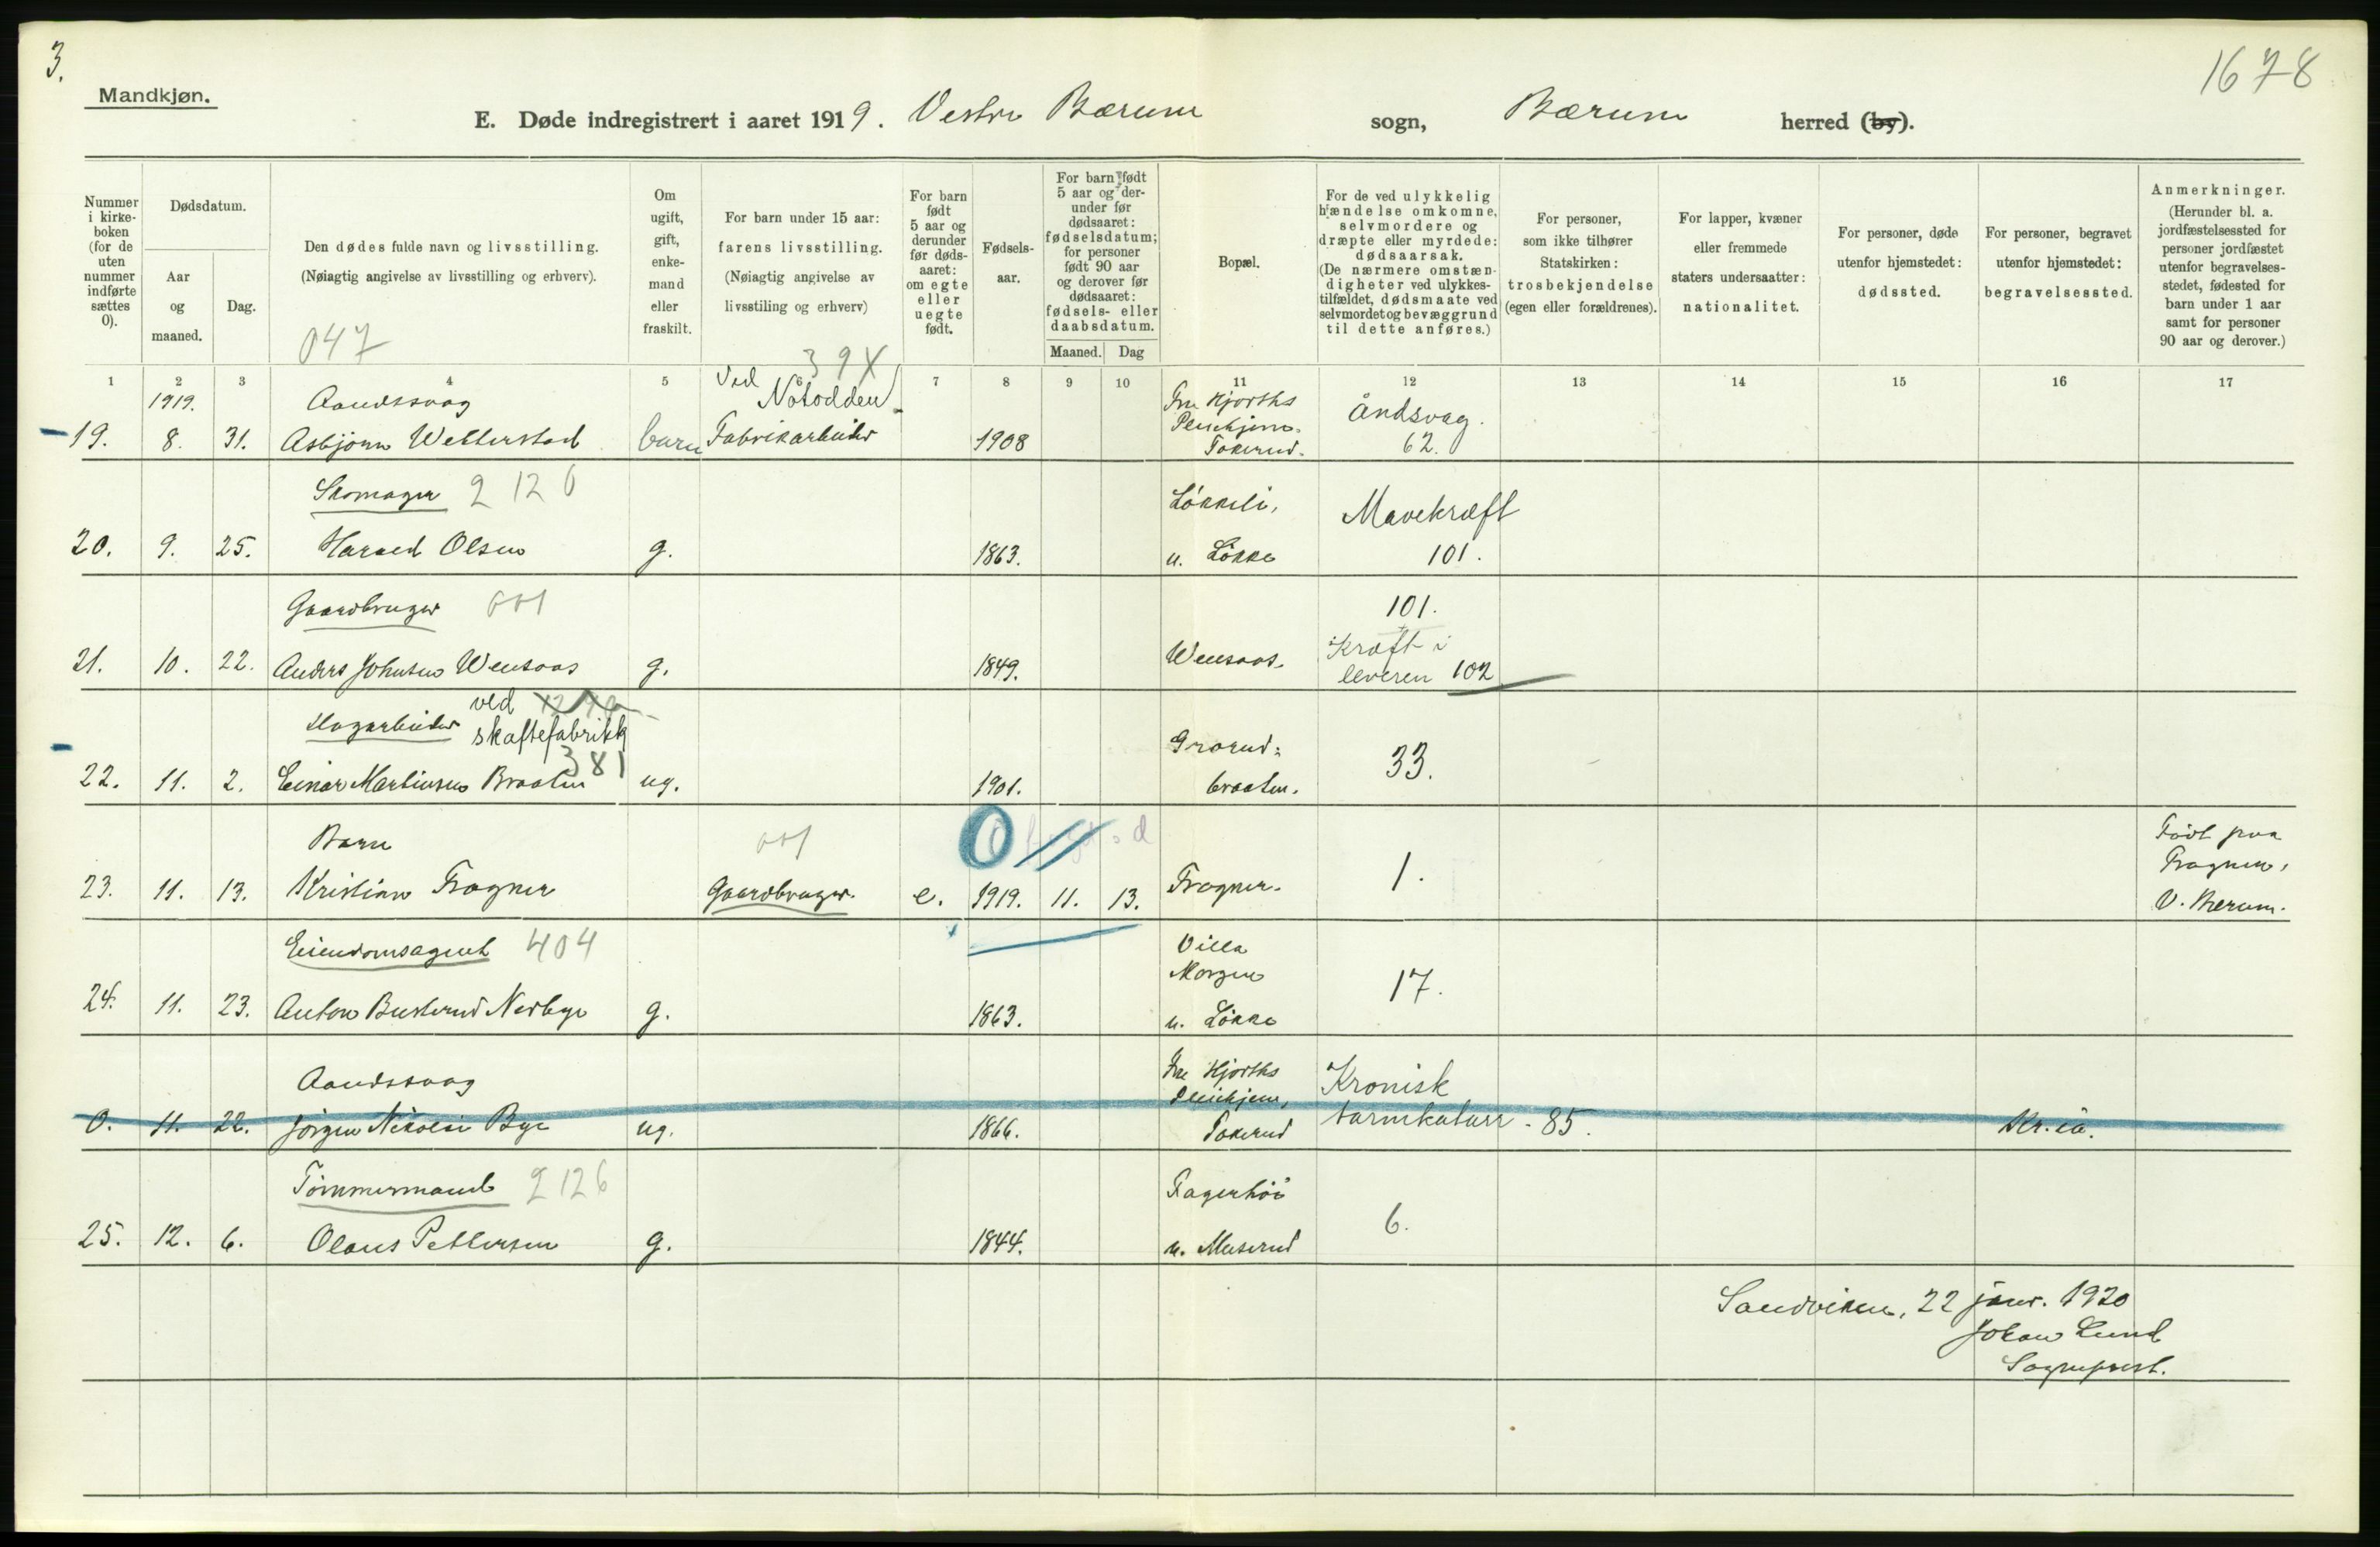 3.
1678
Mandkjøn.
E. Døde indregistrert i aaret 1919. Vestre Bærum sogn, Bærum herred (by).
Nummer i kirkeboken (for de uten nummer indførte sættes 0).
Dødsdatum.
Aar og maaned.
Dag.
Den dødes fulde navn og livsstilling.
(Nøiagtig angivelse av livsstilling og erhverv).
047
Om ugift, gift, enkemand eller fraskilt.
For barn under 15 aar:
farens livsstilling.
(Nøiagtig angivelse av livsstiling og erhverv)
39X
For barn født 5 aar og derunder før dødsaaret: om egte eller uegte født.
Fødselsaar.
For barn født 5 aar og derunder før dødsaaret: fødselsdatum; for personer født 90 aar og derover før dødsaaret: fødsels- eller daabsdatum.
Maaned. Dag
Bopæl.
For de ved ulykkelig hændelse omkomne, selvmordere og dræpte eller myrdede: dødsaarsak.
(De nærmere omstændigheter ved ulykkestilfældet, dødsmaate ved selvmordet og bevæggrund til dette anføres.)
For personer, som ikke tilhører Statskirken: trosbekjendelse (egen eller forældrenes).
For lapper, kvæner eller fremmede staters undersaatter: nationalitet.
For personer, døde utenfor hjemstedet: dødssted.
For personer, begravet utenfor hjemstedet: begravelsessted.
Anmerkninger.
(Herunder bl. a. jordfæstelsessted for personer jordfæstet utenfor begravelsesstedet, fødested for barn under 1 aar samt for personer 90 aar og derover.)
1 2 3 4 5 6 7 8 9 10 11 12 13 14 15 16 17
1919. Aandssvag Ved Notodden Frk Hjorths Pleiehjem. Åndsvag.
19. 8. 31. Asbjørn Wetterstad barn Fabrikarbeider 1908 Tokerud. 62.
Skomager 2126 Løkkeli, Mavekræft
20. 9. 25. Harald Olsen g. 1863. u. Løkke 101.
Gaardbruger 001 101.
21. 10. 22. Anders Johnsen Wensaas g. 1849. Wensaas. Kræft i leveren 102
Høgarbeider ved skaftefabrikk 381 Grorud-
22. 11. 2. Einar Martinsen Braaten ug. 1901. braaten. 33.
Barn 001 0 Født paa Frogner,
23. 11. 13. Kristian Frogner Gaardbruger. e. 1919. 11. 13. Frogner. 1. V. Bærum.
Eiendomsagent 404 Villa Morgen
24. 11. 23. Anton Buskerud Nedbye g. 1863. u. Løkke 17.
Aandssvag Frk Hjorths Pleiehjem, Kronisk
0. 11. 22. Jørgen Nikolai Bye ug. 1866. Tokerud tarmkatarr - 85. Kr.ia.
Tømmermand 2126 Fagerhøi
25. 12. 6. Olaus Pettersen g. 1844. u. Muserud 6.
Sandviken, 22 janr. 1920
Johan Lund
Sogneprest.